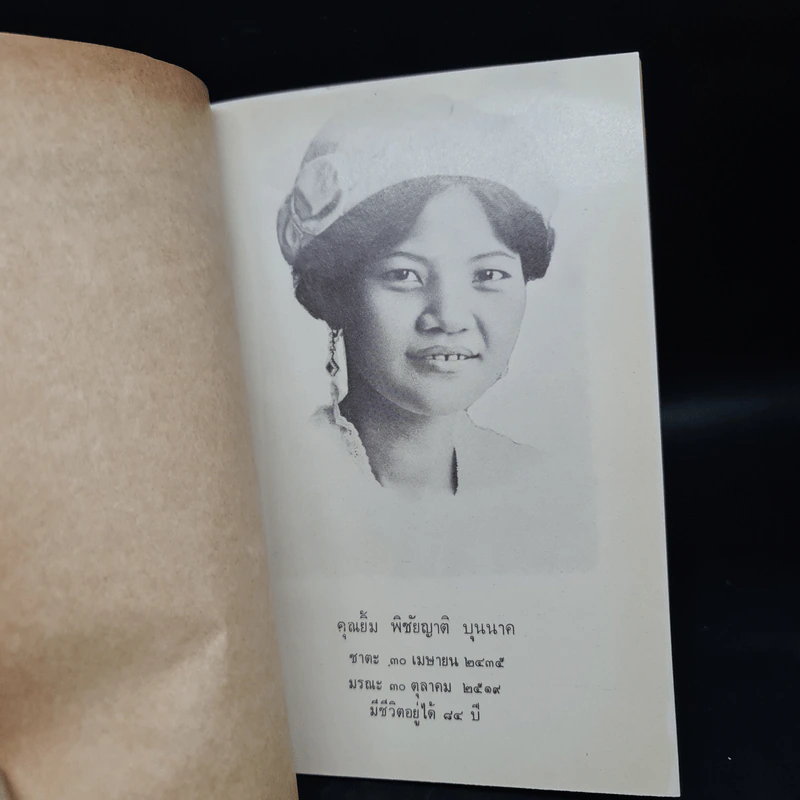 คุณยิ้ม พิชัยญาติ บุนนาค
ชาตะ ๓๐ เมษายน ๒๔๓๕
มรณะ ๓๐ ตุลาคม ๒๕๑๙
มีชีวิตอยู่ได้ ๘๔ ปี